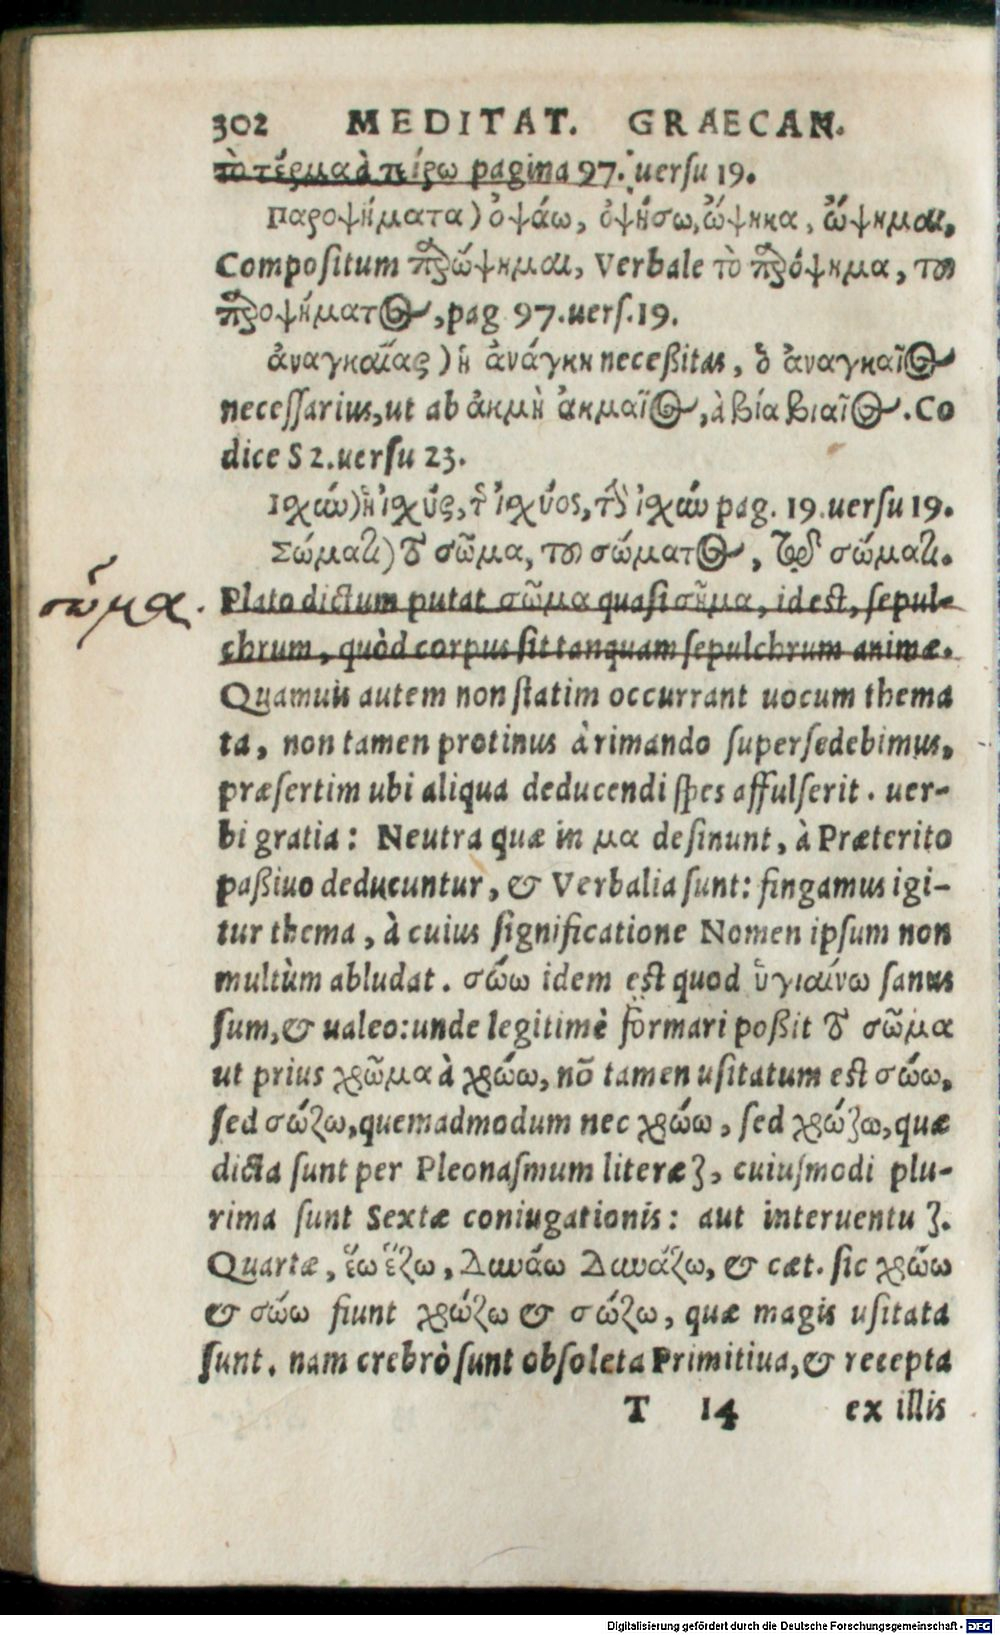 302 MEDITAT. GRAECAN.
τὸ τέρμα à πείρω pagina 97. uersu 19.
Παροψήματα) ὀψάω, ὀψήσω, ὤψηκα, ὤψημαι,
Compositum παρώψημαι, Verbale τὸ παρόψημα, του
παροψήματος, pag 97. uers. 19.
ἀναγκαίας) ἡ ἀνάγκη neceßitas, ὁ ἀναγκαῖος
necessarius, ut ab ἀκμὴ ἀκμαῖος, à βία βιαῖος. Co
dice S 2. uersu 23.
Ιχύν) ἡ ἰχύς, τῆς ἰχύος, τὴν ἰχύν pag. 19. uersu 19.
Σώματι) τὸ σῶμα, του σώματος, τῷ σώματι.
σῶμα.
Plato dictum putat σῶμα quasi σῆμα, id est, sepul-
chrum, quòd corpus sit tanquam sepulchrum animæ.
Quamuis autem non statim occurrant uocum thema
ta, non tamen protinus à rimando supersedebimus,
præsertim ubi aliqua deducendi spes affulserit. uer-
bi gratia: Neutra quæ in μα desinunt, à Præterito
paßiuo deducuntur, & Verbalia sunt: fingamus igi-
tur thema, à cuius significatione Nomen ipsum non
multùm abludat. σώω idem est quod ὑγιαίνω sanus
sum, & ualeo: unde legitimè formari poßit τὸ σῶμα
ut prius χρῶμα à χρώω, nō tamen usitatum est σώω,
sed σώζω, quemadmodum nec χρώω, sed χρώζω, quæ
dicta sunt per Pleonasmum literæ ζ, cuiusmodi plu-
rima sunt Sextæ coniugationis: aut interuentu ζ.
Quartæ, ἕω ἕζω, Δαυάω Δαυάζω, & cæt. sic χρώω
& σώω fiunt χρώζω & σώζω, quæ magis usitata
sunt. nam crebrò sunt obsoleta Primitiua, & recepta
T 14 ex illis
Digitalisierung gefördert durch die Deutsche Forschungsgemeinschaft - DFG